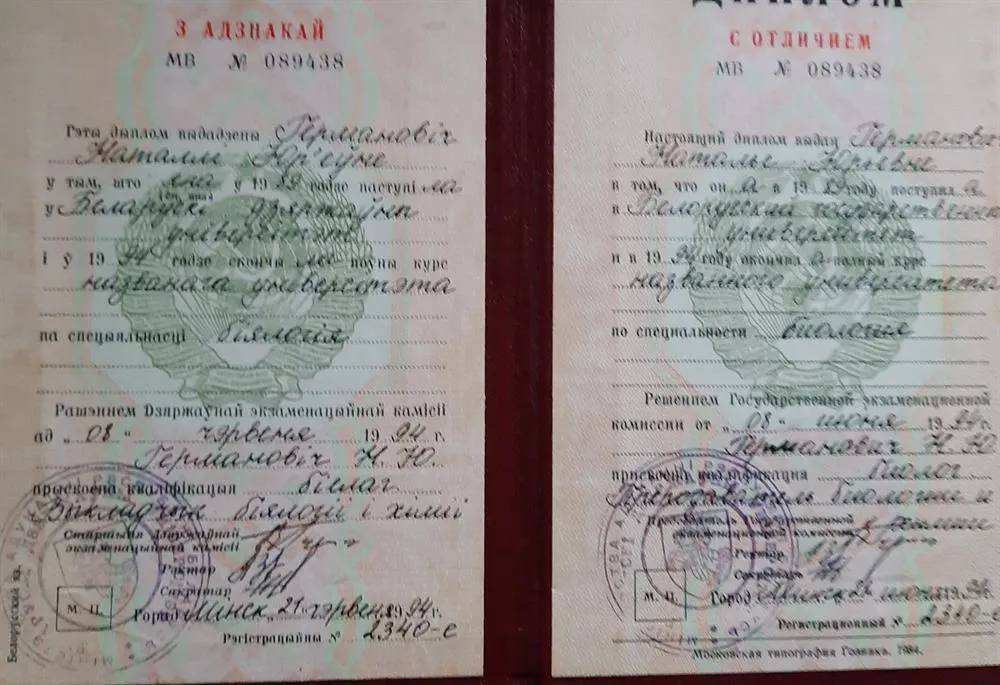 З АДЗНАКАЙ
МВ № 089438
Гэты дыплом выдадзены Германовіч
Наталлі Юр'еўне
у тым, што яна у 1989 годзе паступіла
(ён, яна)
у Беларускі дзяржаўны
універсітэт
і ў 1994 годзе скончыла поўны курс
названага універсітэта
па спецыяльнасці біялогія
Рашэннем Дзяржаўнай экзаменацыйнай камісіі
ад „08“ чэрвеня 1994 г.
Германовіч Н.Ю.
прысвоена кваліфікацыя біёлаг
Выкладчык біялогіі і хіміі
Старшыня Дзяржаўнай
экзаменацыйнай камісіі
Рэктар
Сакратар
М. П.
Горад Мінск „21“ чэрвеня 1994 г.
Рэгістрацыйны № 2340-с
Белорусский яз.
ДИПЛОМ
С ОТЛИЧИЕМ
МВ № 089438
Настоящий диплом выдан Германович
Наталье Юрьевне
в том, что он а в 1989 году поступила
в Белорусский государственный
университет
и в 1994 году окончила полный курс
названного университета
по специальности биология
Решением Государственной экзаменационной
комиссии от „08“ июня 1994 г.
Германович Н.Ю.
присвоена квалификация биолог
Преподаватель биологии и
химии
Председатель Государственной
экзаменационной комиссии
Ректор
Секретарь
М. П.
Город Минск 21 июня 1994.
Регистрационный № 2340-с
Московская типография Гознака. 1984.